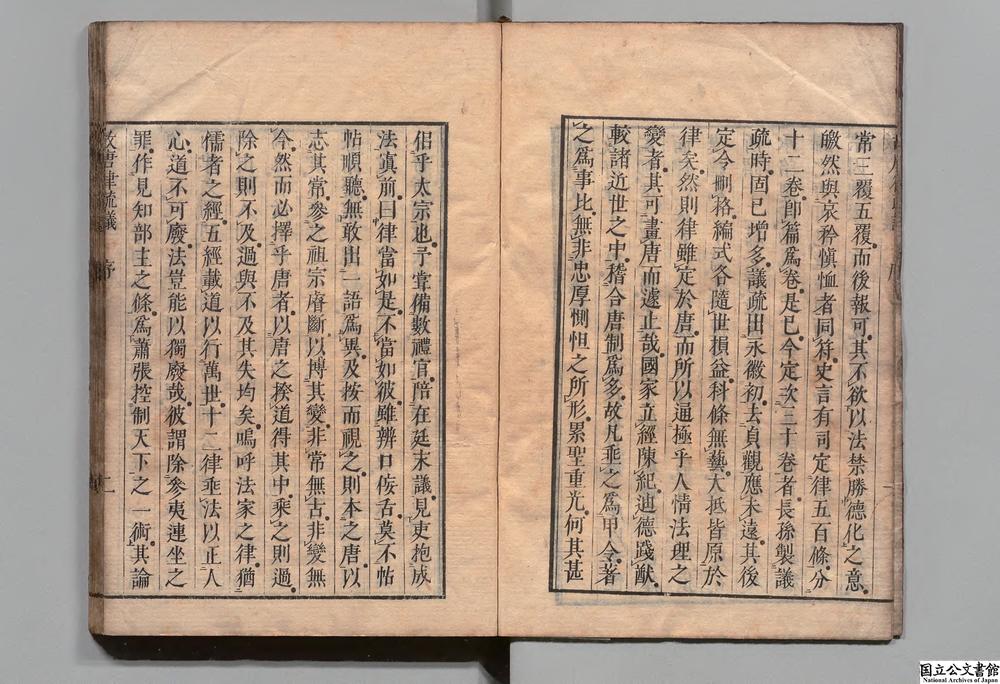 常三覆五覆而後報可其不欲以法禁勝德化之意
皦然與哀矜慎恤者同符史言有司定律五百條分
十二卷卽篇爲卷是已今定次三十卷者長孫製議
疏時固已增多議疏出永徽初去貞觀應未遠其後
定令刪格編式各隨世損益科條無藝大抵皆原於
律矣然則律雖定於唐而所以通極乎人情法理之
變者其可畫唐而遽止哉國家立經陳紀迪德踐猷
較諸近世之中稽合唐制爲多故凡乖之爲甲令著
之爲事比無非忠厚惻怛之所形累聖重光何其甚
侶乎太宗也予甞備數禮官陪在廷末議見吏抱成
法寘前曰律當如是不當如彼雖辨口佞舌莫不帖
帖順聽無敢出一語爲異及按而視之則本之唐以
志其常參之祖宗睿斷以博其變非常無古非變無
今然而必擇乎唐者以唐之揆道得其中乘之則過
除之則不及過與不及其失均矣嗚呼法家之律猶
儒者之經五經載道以行萬世十二律垂法以正人
心道不可廢法豈能以獨廢哉彼謂除參夷連坐之
罪作見知部主之條爲蕭張控制天下之一術其論
故唐律疏議 序
國立公文書館
National Archives of Japan